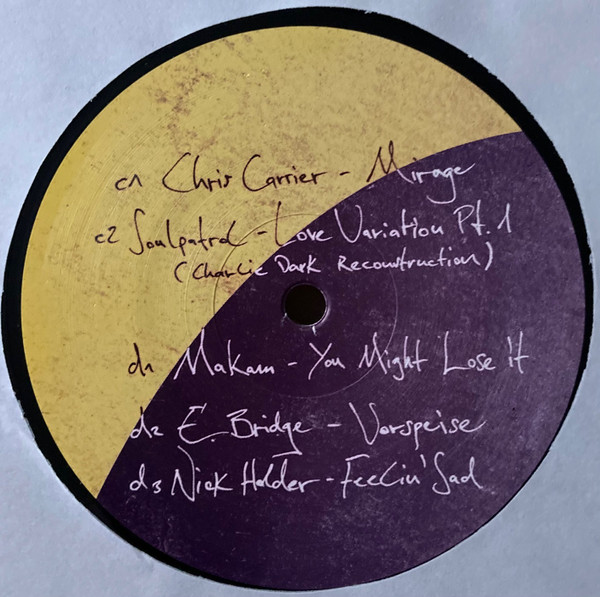 c1 Chris Carrier - Mirage
c2 Soulpatrol - Love Variation Pt. 1
(Charlie Dark Reconstruction)
d1 Makam - You Might Lose it
d2 E. Bridge - Vorspeise
d3 Nick Holder - Feelin' Sad